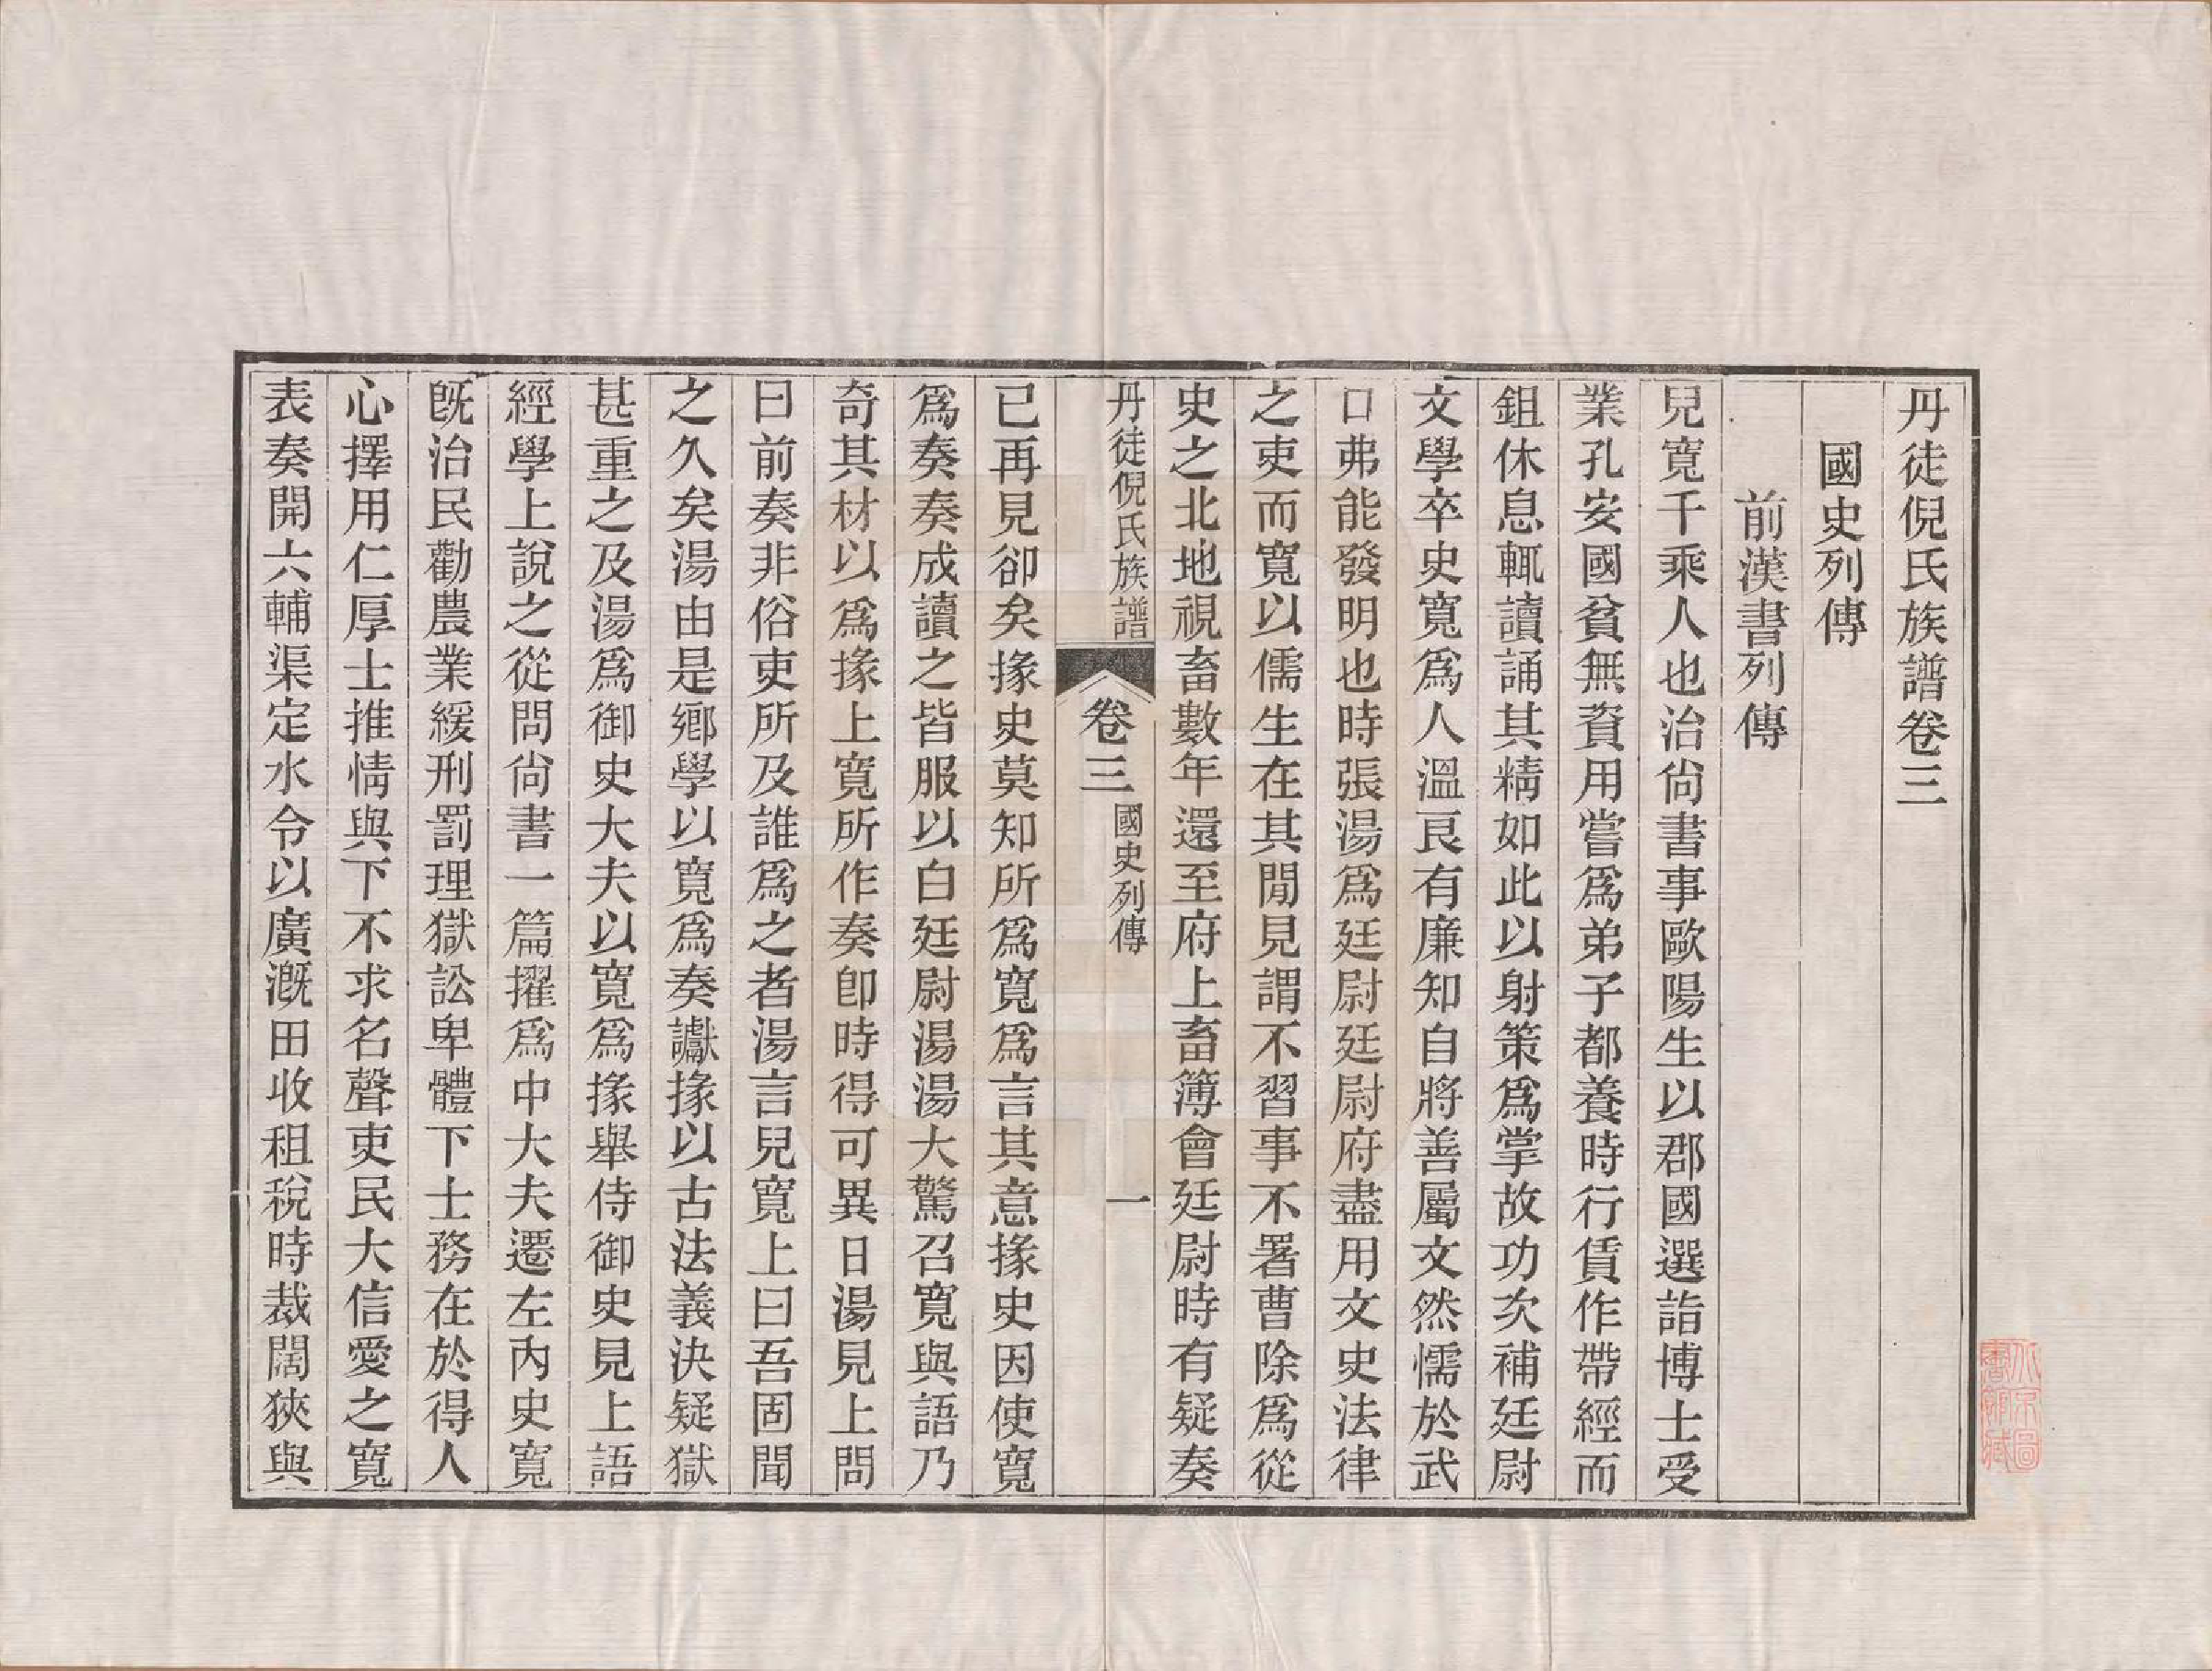 丹徒倪氏族譜卷三
國史列傳
前漢書列傳
兒寬千乘人也治尙書事歐陽生以郡國選詣博士受
業孔安國貧無資用嘗爲弟子都養時行賃作帶經而
鉏休息輒讀誦其精如此以射策爲掌故功次補廷尉
文學卒史寬爲人溫良有廉知自將善屬文然懦於武
口弗能發明也時張湯爲廷尉廷尉府盡用文史法律
之吏而寬以儒生在其閒見謂不習事不署曹除爲從
史之北地視畜數年還至府上畜簿會廷尉時有疑奏
丹徒倪氏族譜 卷三 國史列傳 一
已再見卻矣掾史莫知所爲寬爲言其意掾史因使寬
爲奏奏成讀之皆服以白廷尉湯湯大驚召寬與語乃
奇其材以爲掾上寬所作奏卽時得可異日湯見上問
曰前奏非俗吏所及誰爲之者湯言兒寬上曰吾固聞
之久矣湯由是鄉學以寬爲奏讞掾以古法義決疑獄
甚重之及湯爲御史大夫以寬爲掾舉侍御史見上語
經學上說之從問尙書一篇擢爲中大夫遷左內史寬
旣治民勸農業緩刑罰理獄訟卑體下士務在於得人
心擇用仁厚士推情與下不求名聲吏民大信愛之寬
表奏開六輔渠定水令以廣漑田收租稅時裁闊狹與